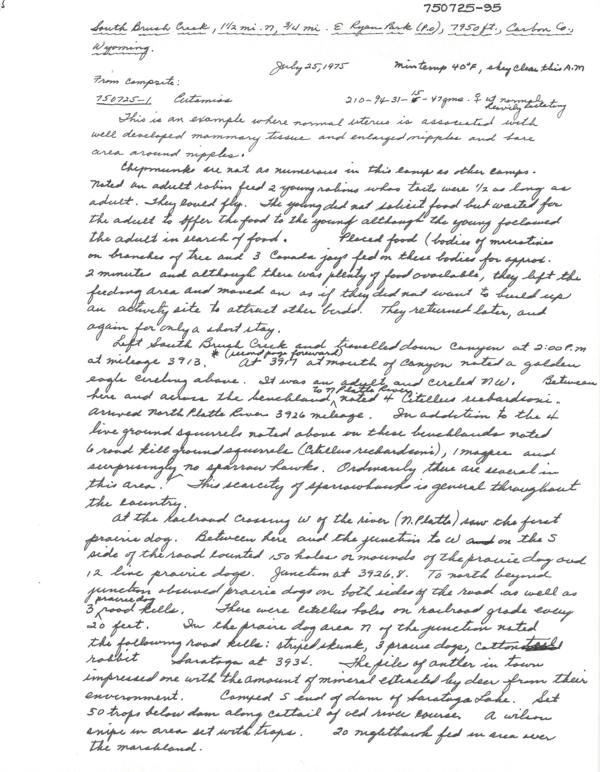 750725-95
South Brush Creek, 1½ mi. N, ¾ mi. E Ryan Park (P.O), 7950 ft., Carbon Co.,
Wyoming.
July 25, 1975 Min temp 40°F, sky clear this A.M
From campsite:
750725-1 Eutamias 210-94-31-15-47gms. ♀ ut normal heavily lactating
This is an example where normal uterus is associated with
well developed mammary tissue and enlarged nipples and bare
area around nipples.
Chipmunks are not as numerous in this camp as other camps.
Noted an adult robin feed 2 young robins whos tails were ½ as long as
adult. They could fly. The young did not solicit food but waited for
the adult to offer the food to the young although the young followed
the adult in search of food. Placed food (bodies of microtines
on branches of tree and 3 Canada jays fed on these bodies for approx.
2 minutes and although there was plenty of food available, they left the
feeding area and moved on as if they did not want to build up
an activity site to attract other birds. They returned later, and
again for only a short stay.
Left South Brush Creek and travelled down canyon at 2:00 P.m
at mileage 3913. * (second page forward) At 3917 at mouth of canyon noted a golden
eagle circling above. It was an adult and circled N.W. Between
here and across the benchland to N Platte River noted 4 Citellus richardsoni.
Arrived North Platte River 3926 mileage. In addition to the 4
live ground squirrels noted above on these benchlands noted
6 road kill ground squirrels (Citellus richardsoni), 1 magpie and
surprisingly no sparrow hawks. Ordinarily there are several in
this area. This scarcity of sparrowhawks is general throughout
the country.
At the railroad crossing W of the river (N. Platte) saw the first
prairie dog. Between here and the junction to W and on the S
side of the road counted 150 holes or mounds of the prairie dog and
12 live prairie dogs. Junction at 3926.8. To north beyond
junction observed prairie dogs on both sides of the road as well as
3 prairie dog road kills. There were citellus holes on railroad grade every
20 feet. In the prairie dog area N of the junction noted
the following road kills: striped skunk, 3 prairie dogs, cottontail
rabbit Saratoga at 3934. The pile of antler in town
impressed one with the amount of mineral extracted by deer from their
environment. Camped S end of dam of Saratoga Lake. Set
50 traps below dam along cattail of old river course. A wilson
snipe in area set with traps. 20 nighthawk fed in area over
the marshland.